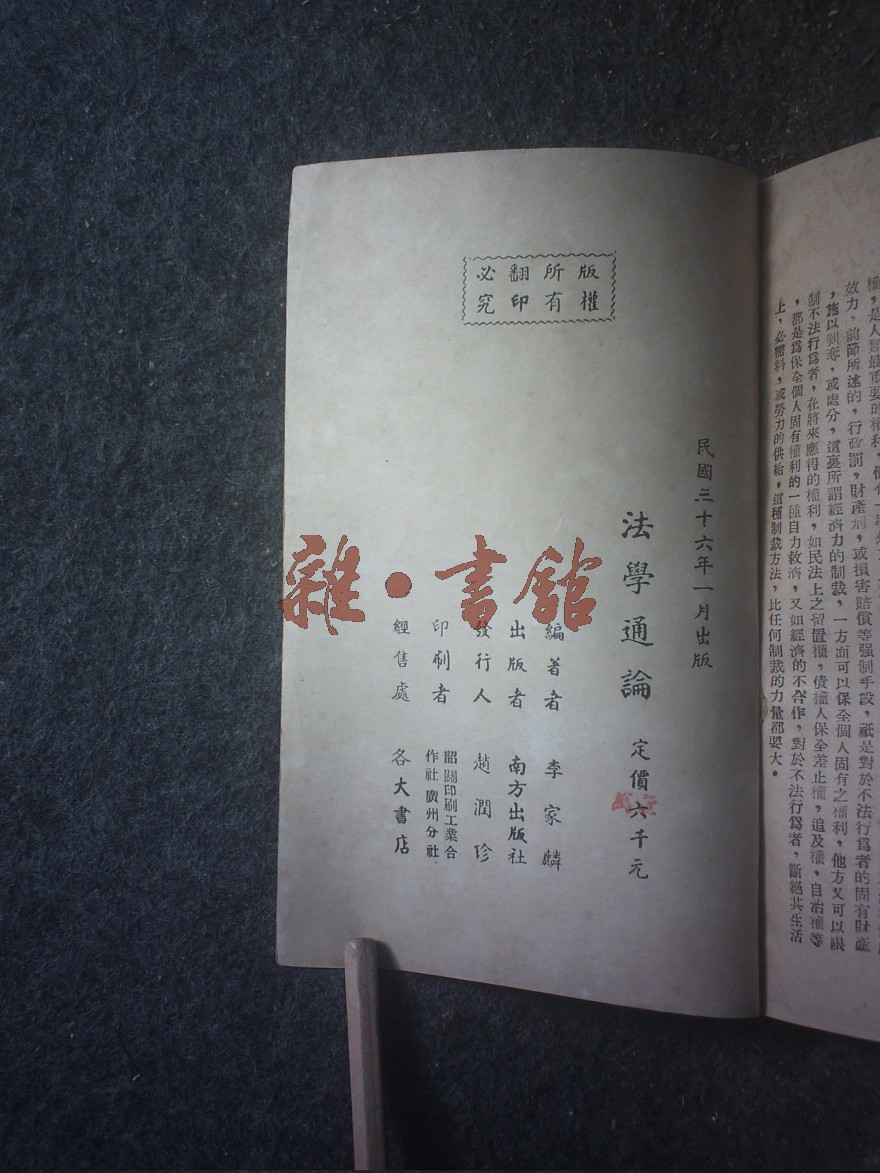 權，是人類最重要的權利，
效力，前節所述的，行政罰，財產刑，或損害賠償等强制手段，祇是對於不法行爲者的固有財產
，施以剝奪，或處分，這裏所謂經濟力的制裁，一方面可以保全個人固有之權利，他方又可以限
制不法行爲者，在將來應得的權利，如民法上之留置權，債權人保全差止權，追及權，自治權等
，都是爲保全個人固有權利的一種自力救濟，又如經濟的不合作，對於不法行爲者，斷絕共生活
上，必需料，或勞力的供給，這種制裁方法，比任何制裁的力量都要大。
版權
所有
翻印
必究
民國三十六年一月出版
法學通論 定價六千元
編著者 李家麟
出版者 南方出版社
發行人 趙潤珍
印刷者 韶關印刷工業合
作社廣州分社
經售處 各大書店
雜·書館